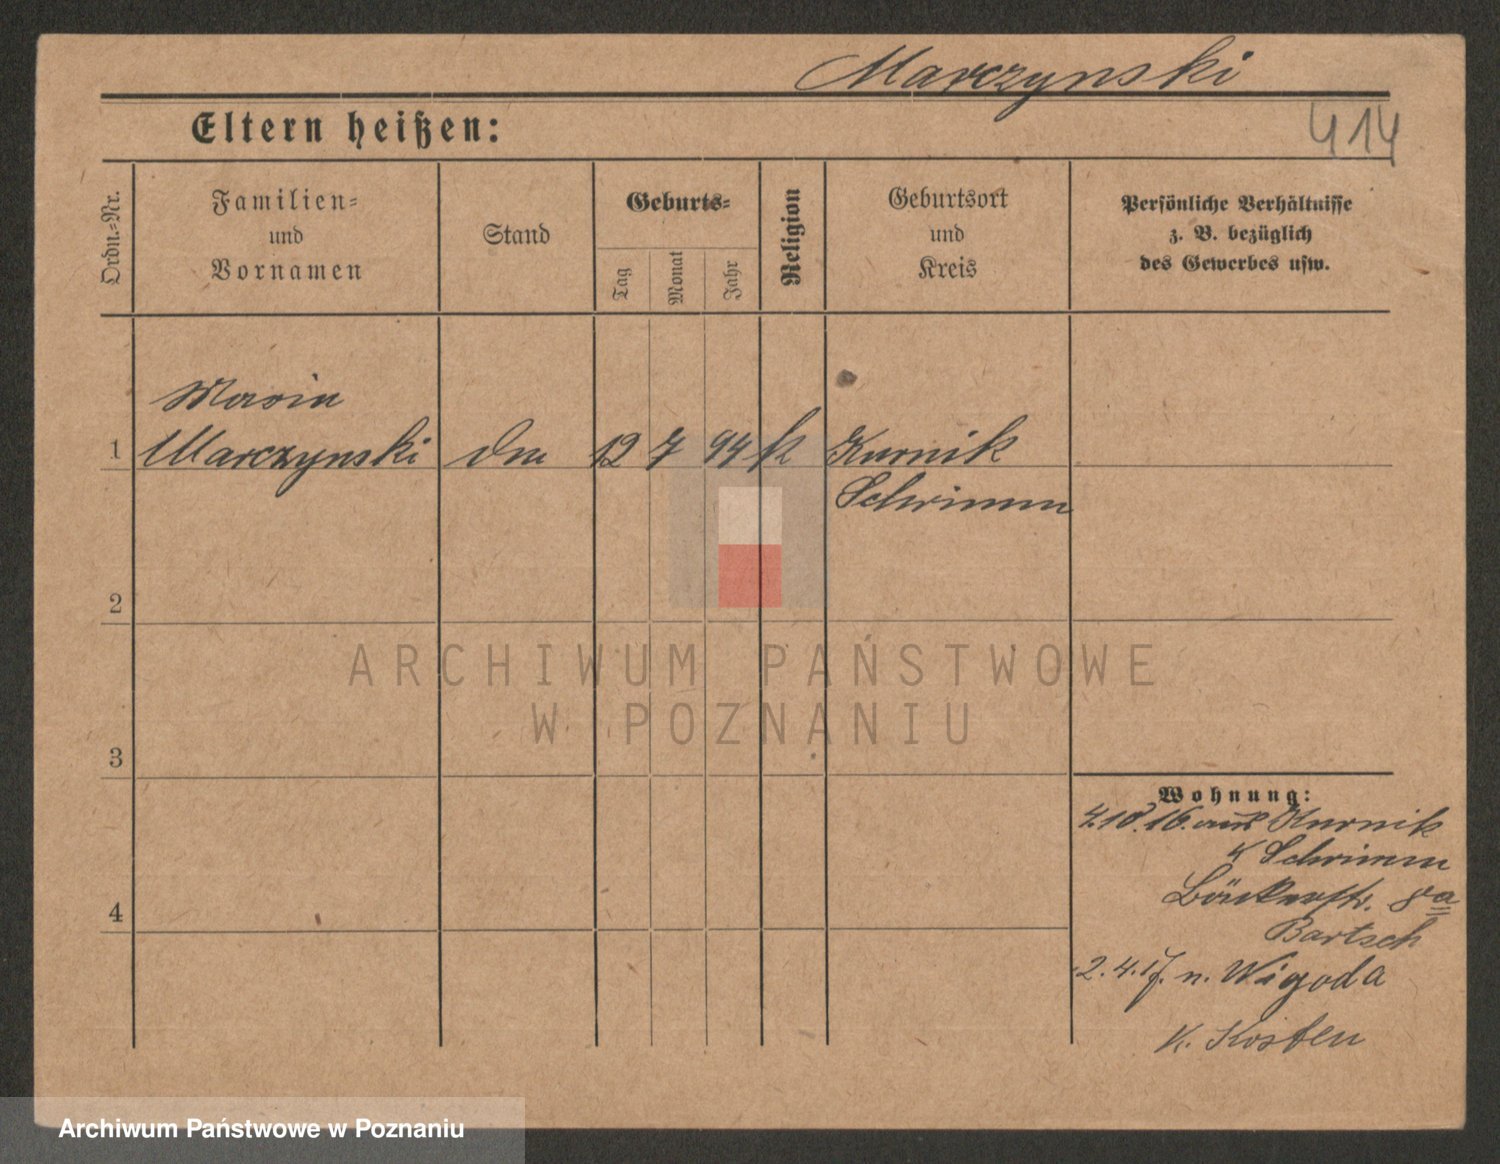 Marczynski
Eltern heißen:
414
Ordn.-Nr.
Familien-
und
Vornamen
Stand
Geburts-
Tag
Monat
Jahr
Religion
Geburtsort
und
Kreis
Persönliche Verhältnisse
z. B. bezüglich
des Gewerbes usw.
Maria
1 Marczynski 12 7 94 k Kurnik
Schrimm
2
ARCHIWUM PAŃSTWOWE
W POZNANIU
3
Wohnung:
4.10.16. aus Kurnik
K Schrimm
Bäckerstr. 8a
4
Bartsch
2.4.17. n. Wigoda
K. Kosten
Archiwum Państwowe w Poznaniu